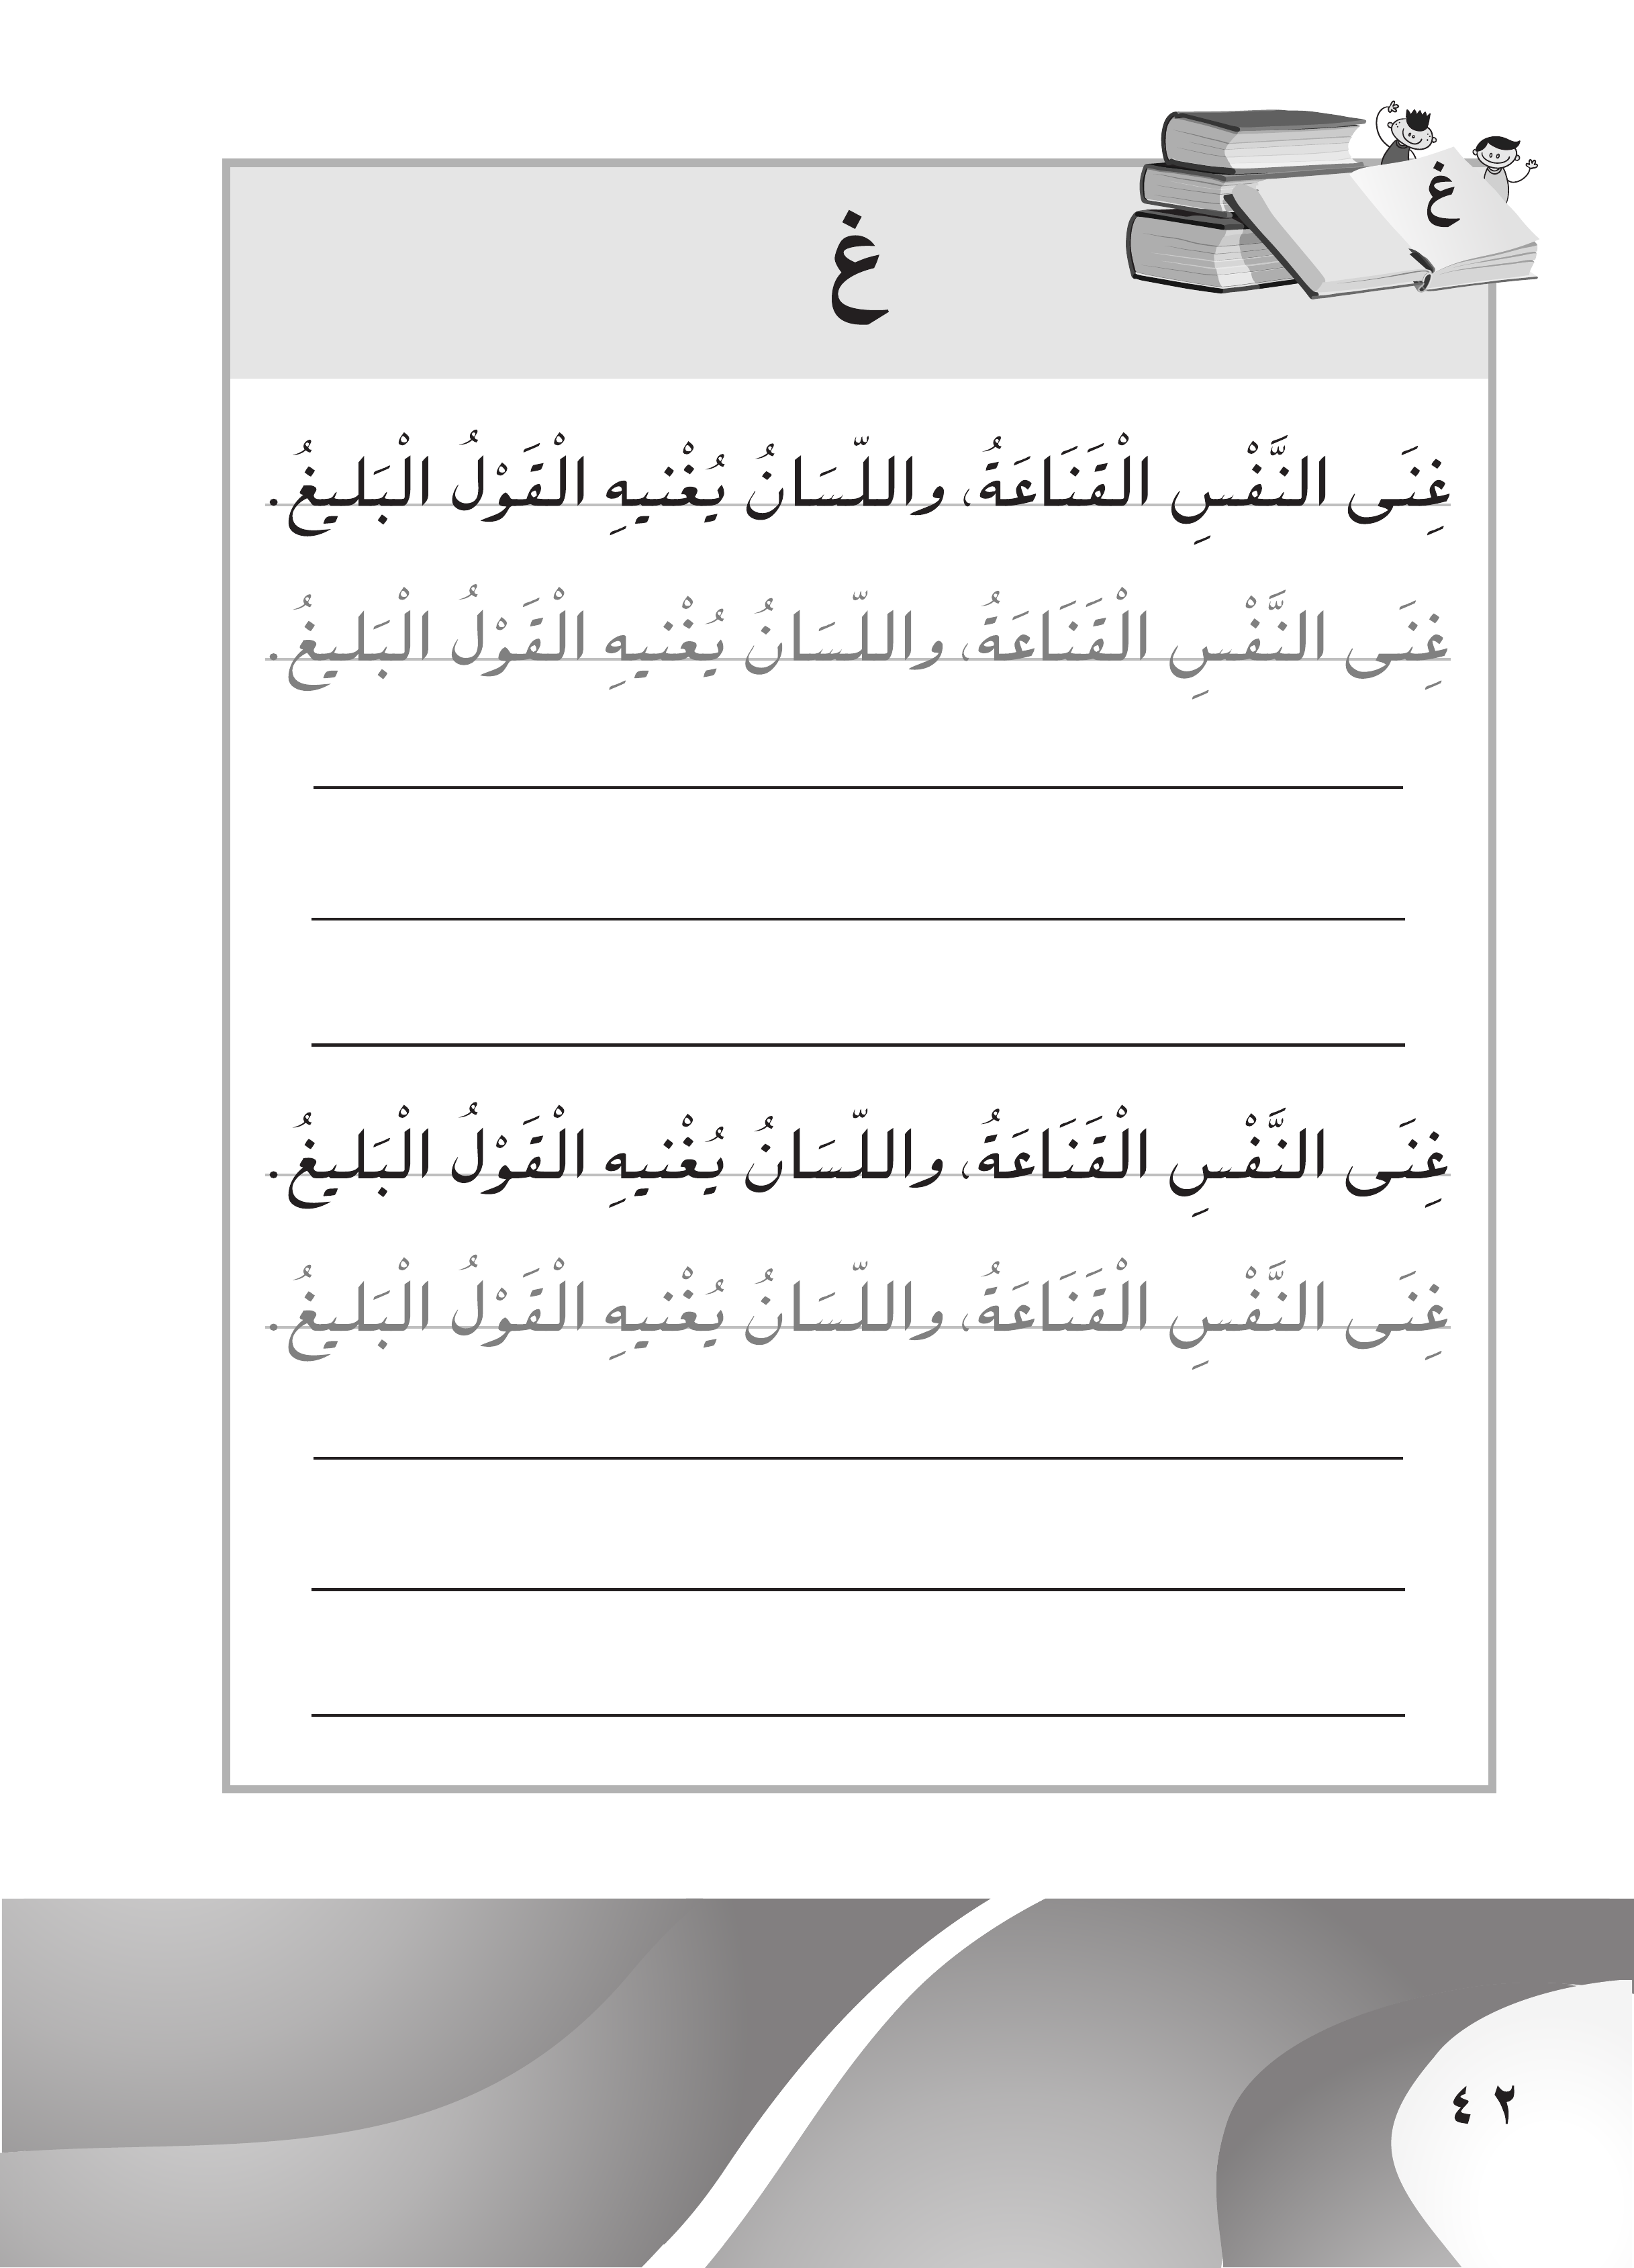 غ
غ
غِنَى النَّفْسِ الْقَنَاعَةُ، واللّسَانُ يُغْنيهِ الْقَوْلُ الْبَليغُ.
غِنَى النَّفْسِ الْقَنَاعَةُ، واللّسَانُ يُغْنيهِ الْقَوْلُ الْبَليغُ.
غِنَى النَّفْسِ الْقَنَاعَةُ، واللّسَانُ يُغْنيهِ الْقَوْلُ الْبَليغُ.
غِنَى النَّفْسِ الْقَنَاعَةُ، واللّسَانُ يُغْنيهِ الْقَوْلُ الْبَليغُ.
٤٢